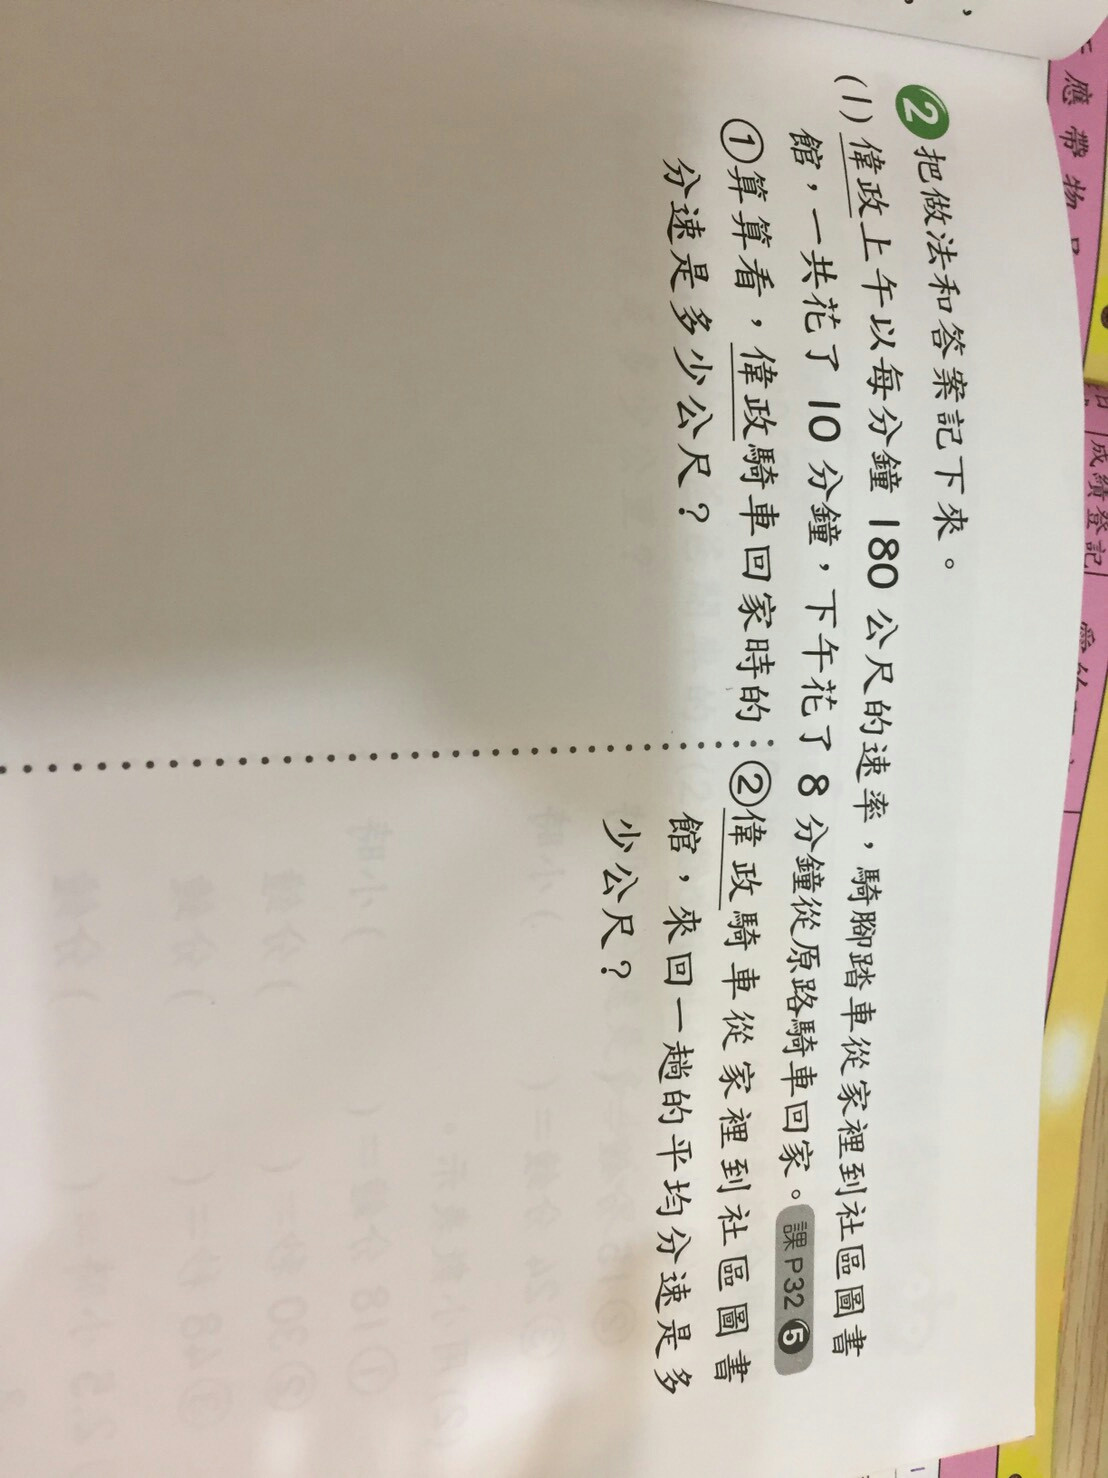 應帶物
成績登記
2 把做法和答案記下來。
(1)偉政上午以每分鐘 180 公尺的速率，騎腳踏車從家裡到社區圖書
館，一共花了 10 分鐘，下午花了 8 分鐘從原路騎車回家。課P32 5
①算算看，偉政騎車回家時的
分速是多少公尺？
②偉政騎車從家裡到社區圖書
館，來回一趟的平均分速是多
少公尺？